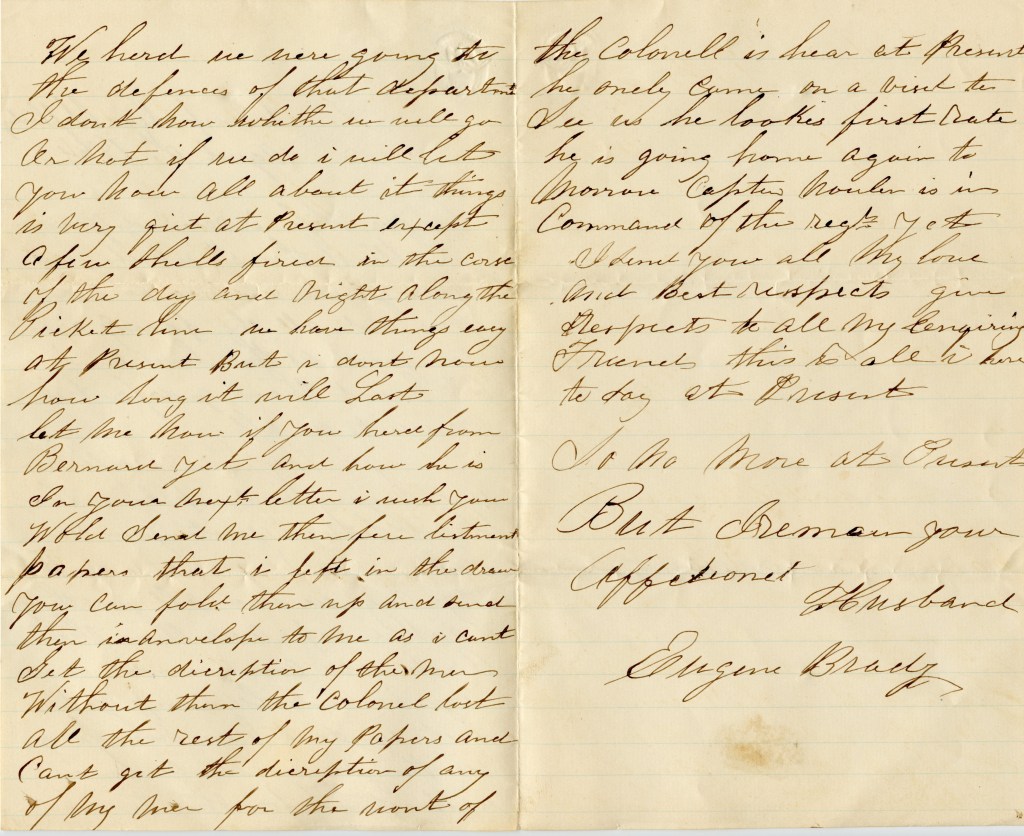 We herd we were going to
the defences of that departmt
I dont know whithe we will go
Or Not if we do i will let
you know all about it things
is very qiet at Present except
a few Shells fired in the corse
of the day and Night along the
Picket line we have things easy
at Present But i dont know
how long it will Last
let me know if you herd from
Bernard yet and how he is
In your next letter i wish you
Wold Send me them few listment
papers that i left in the draw
you can fold them up and send
them in anvelope to me as i cant
Get the discreption of the men
Without them the Colonel lost
all the rest of my Papers and
Cant get the discreption of any
of my men for the wont of
the Colonell is hear at Present
he onely came on a visit to
See us he lookes first rate
he is going home again to
Morrow Capten is in
Command of the regt yet
I send you all My love
and Best respects give
Respects to all my enqiring
Friends this is all i have
to day at Present
So No More at Present
But I remain your
Affectionet
Husband
Eugene Brady